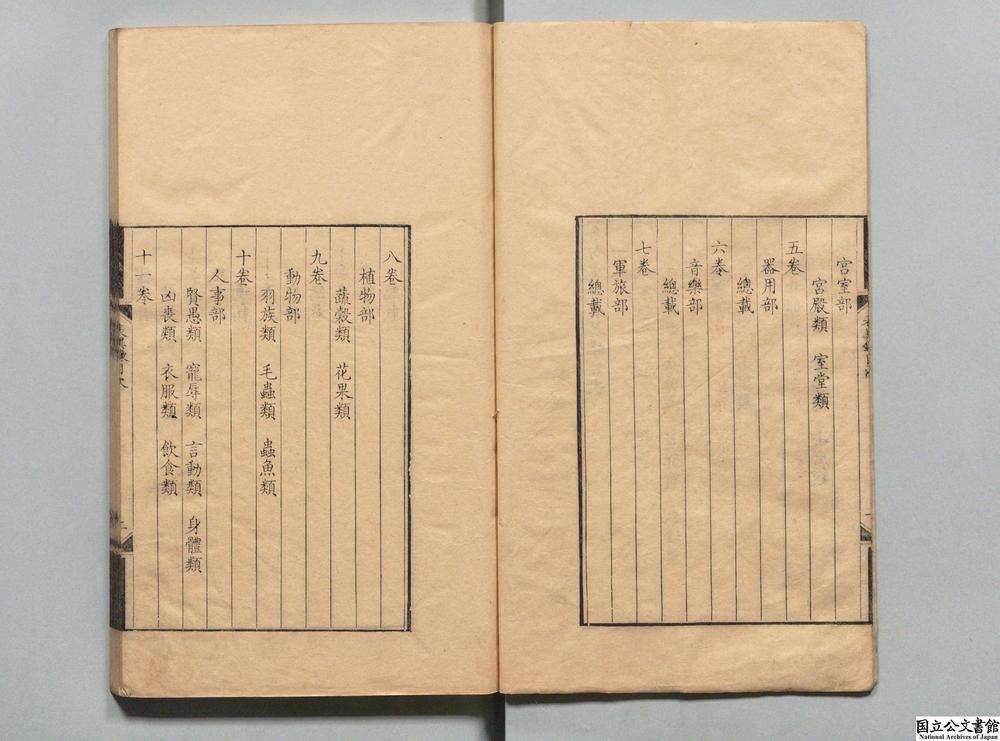 宮室部
宮殿類 室堂類
五卷
器用部
總載
六卷
音樂部
總載
七卷
軍旅部
總載
八卷
植物部
蔬穀類 花果類
九卷
動物部
羽族類 毛蟲類 蟲魚類
十卷
人事部
賢愚類 寵辱類 言動類 身體類
凶喪類 衣服類 飲食類
十一卷
国立公文書館
National Archives of Japan